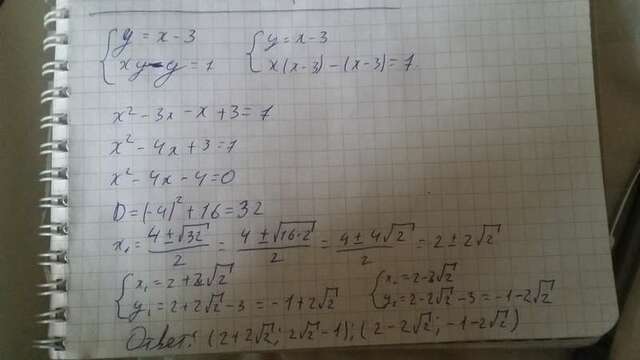 { y = x - 3   { y = x - 3
{ xy - y = 7   { x(x-3) - (x-3) = 7
x² - 3x - x + 3 = 7
x² - 4x + 3 = 7
x² - 4x - 4 = 0
D = (-4)² + 16 = 32
x₁ = (4 ± √32)/2 = (4 ± √(16·2))/2 = (4 ± 4√2)/2 = 2 ± 2√2
{ x₁ = 2 + 2√2   { x₂ = 2 - 2√2
{ y₁ = 2 + 2√2 - 3 = -1 + 2√2   { y₂ = 2 - 2√2 - 3 = -1 - 2√2
Ответ: (2 + 2√2; 2√2 - 1); (2 - 2√2; -1 - 2√2)